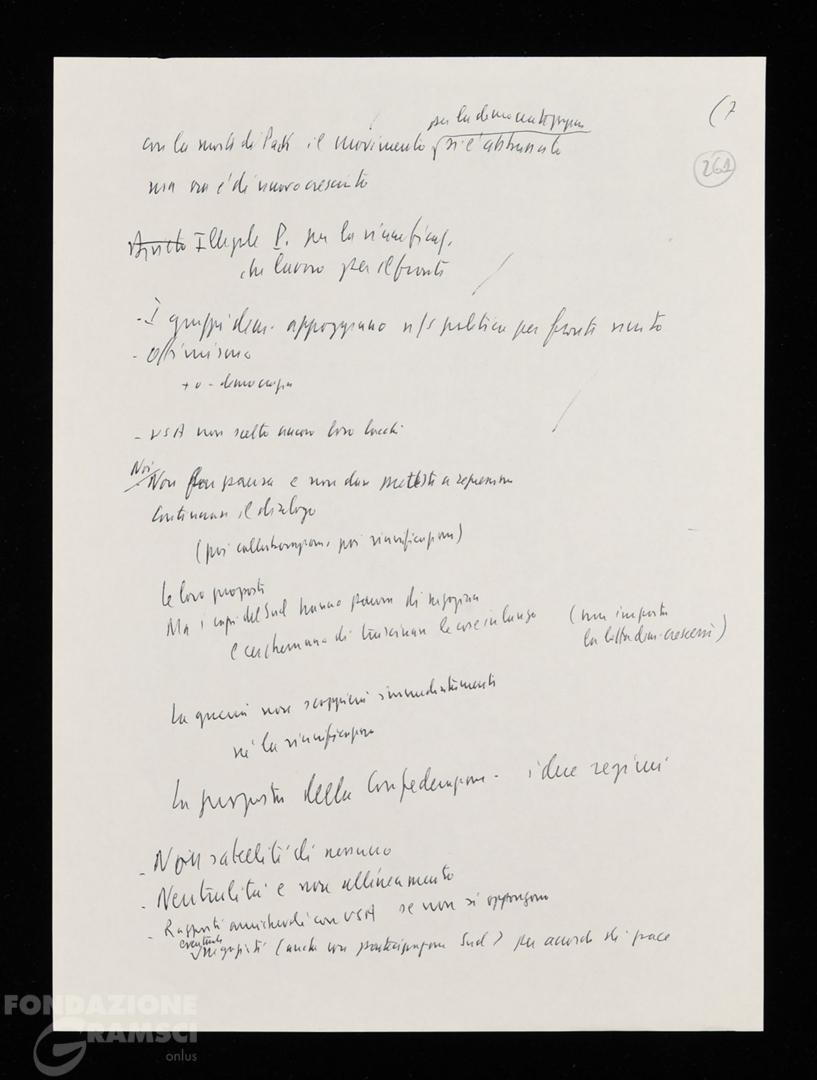 (7
261
per la democratizzazione
con la morte di Park il movimento si è abbassato
ma ora è di nuovo cresciuto
Illegale P. per la riunificaz.
che lavora per il fronte
- I gruppi dem. appoggiano n/s politica per fronte unito
- Ottimismo
+ o - democrazia
- USA non scelto ancora loro
Noi
Non paura e non dare pretesti a repressione
Continuare il dialogo
(poi collaborazione, poi riunificazione)
Le loro proposte
Ma i capi del Sud hanno paura di negoziare
e cercheranno di trascinare le cose in lungo (non importa
la lotta dem. crescerà)
La guerra non scoppierà immediatamente
né la riunificazione
La proposta della Confederazione - i due regimi
- Non satelliti di nessuno
- Neutralità e non allineamento
- Rapporti amichevoli con USA se non si oppongono
eventuali
negoziati (anche con partecipazione Sud) per accordo di pace
FONDAZIONE
GRAMSCI
onlus